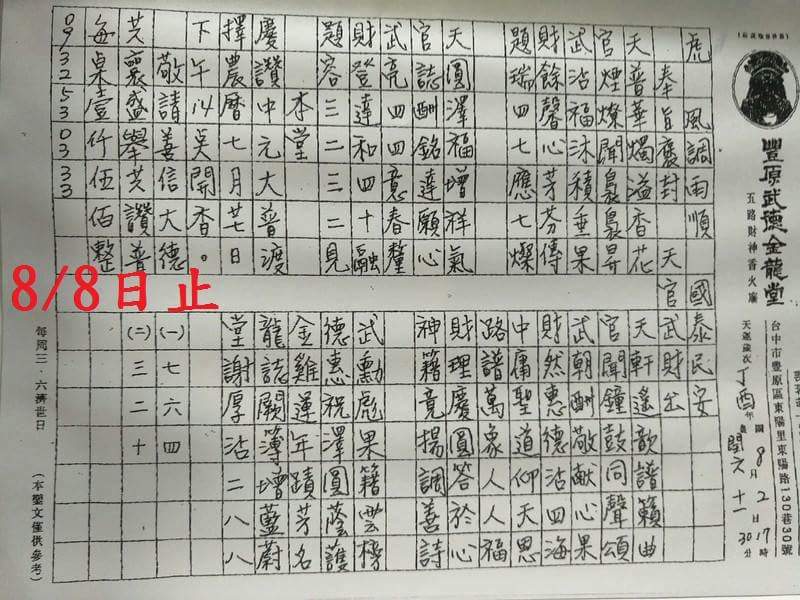 豐原武德金龍堂
五路財神香火廟
台中市豐原區東陽里東陽路130巷30號
天運歲次丁酉年 國8月2日17時30分 農閏六十一
虎 風調雨順 國泰民安
奉旨褒封 天官武財出
天普華燭溢香花
官煙燦聞裊裊昇
武沾福沐積垂果
財餘馨心芳芬傳
題瑞四七應七燦
天圓澤福增祥氣
官誌酬銘達願心
武亮四四意春釐
財登達和四十融
題容三二三二見
天軒遙歆譜籟曲
官聞鐘鼓同聲頌
武朝酬敬献心果
財然惠德沾四海
中庸聖道仰天恩
路譜萬象人人福
財理慶圓答於心
神籍竟揚調善詩
武勳彪果籍雲榜
德惠祝澤圓蔭護
金雞運年蹟芳名
龍誌闕簿增藍蔚
堂謝厚沾二八八
(一)七六四
(二)三二十
本堂
慶讚中元大普渡
擇農曆七月廿七日
下午14吳開香。
敬請善信大德
共襄盛舉共讚普
每桌壹仟伍佰整
0932530333
8/8日止
每周三.六濟世日
(本鑾文僅供參考)